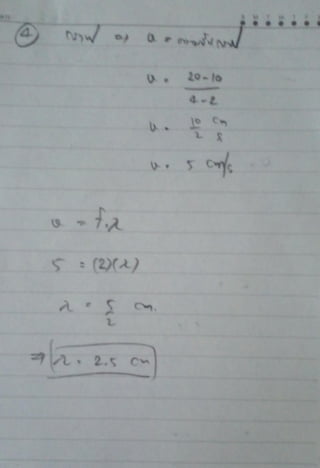 4 กราฟ
v = 20-10
4-2
v = 10 cm
2 s
v = 5 cm/s
v = f.λ
5 = (2)(λ)
λ = 5 cm.
2
⇒ λ = 2.5 cm